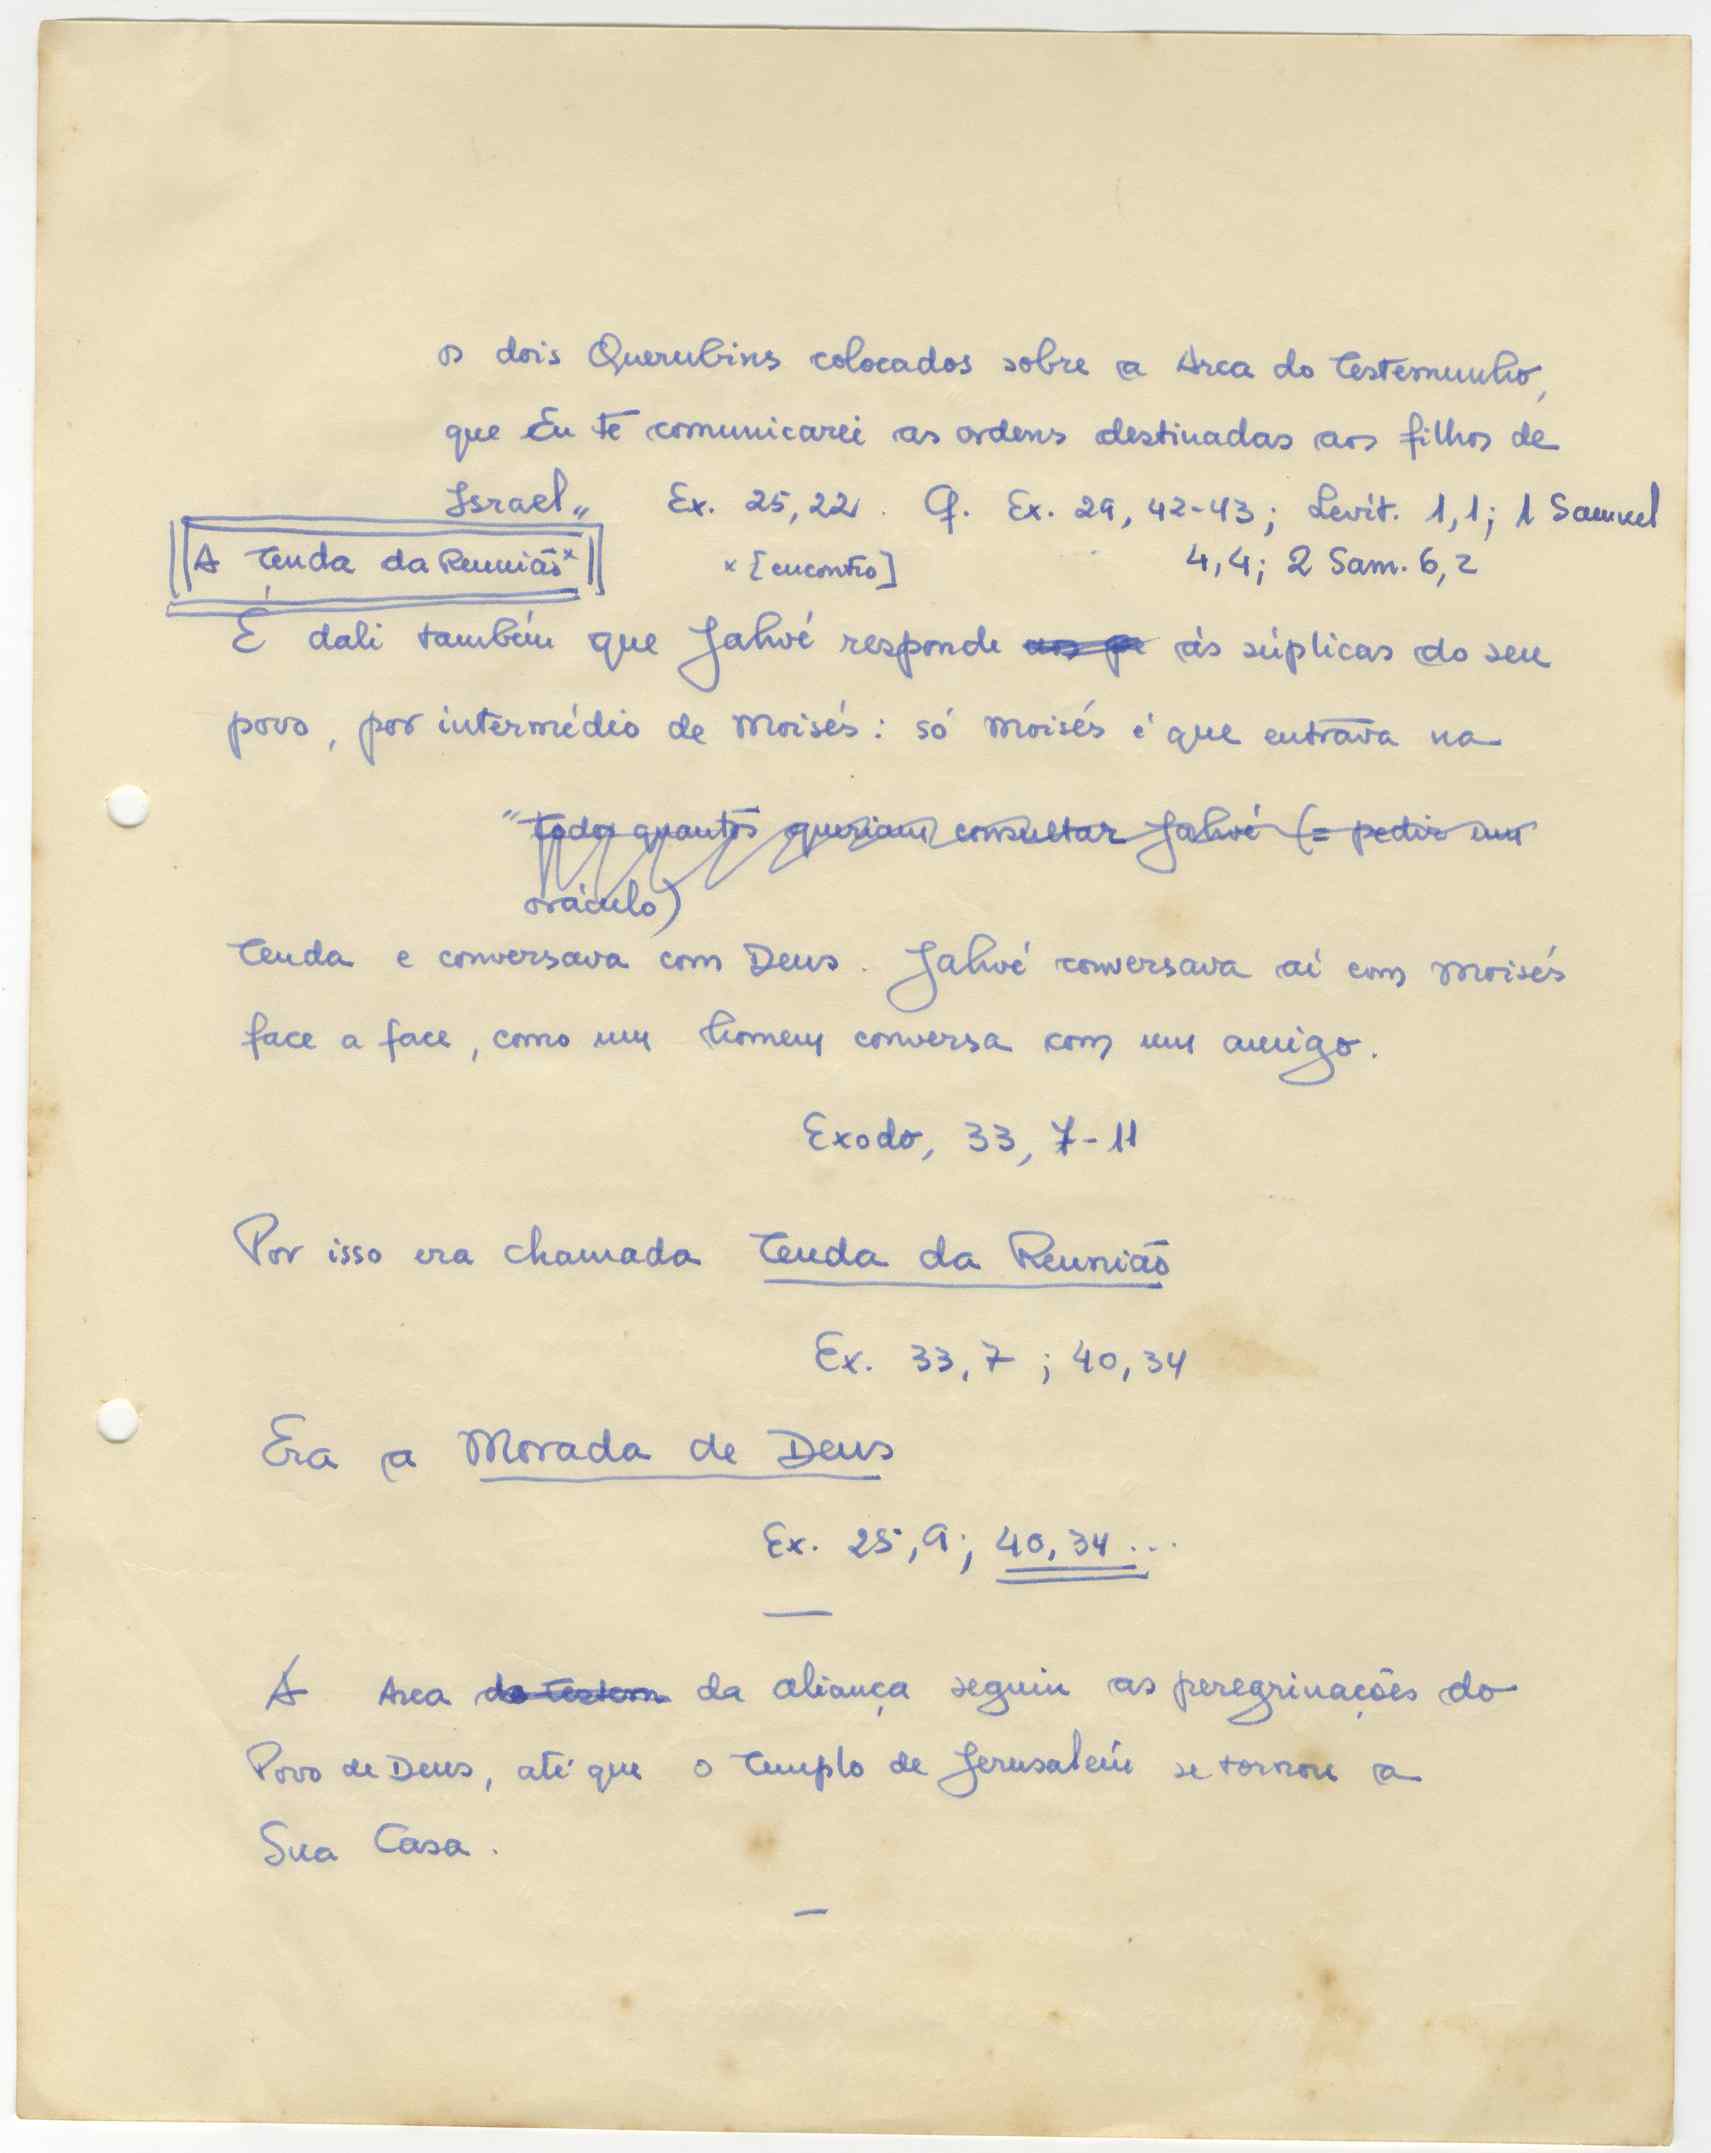 os dois Querubins colocados sobre a Arca do Testemunho,
que Eu te comunicarei as ordens destinadas aos filhos de
Israel„ Ex. 25,22. Cf. Ex. 29, 42-43; Levit. 1,1; 1 Samuel
4,4; 2 Sam. 6,2
A Tenda da Reunião× × [encontro]
É dali também que Jahvé responde às súplicas do seu
povo, por intermédio de Moisés: só Moisés é que entrava na
"todos quantos queriam consultar Jahvé (= pedir um
oráculo)
Tenda e conversava com Deus. Jahvé conversava aí com Moisés
face a face, como um homem conversa com um amigo.
Exodo, 33, 7-11
Por isso era chamada Tenda da Reunião
Ex. 33,7 ; 40,34
Era a Morada de Deus
Ex. 25,9; 40,34...
A Arca do Testem da aliança seguiu as peregrinações do
Povo de Deus, até que o Templo de Jerusalém se tornou a
Sua Casa.